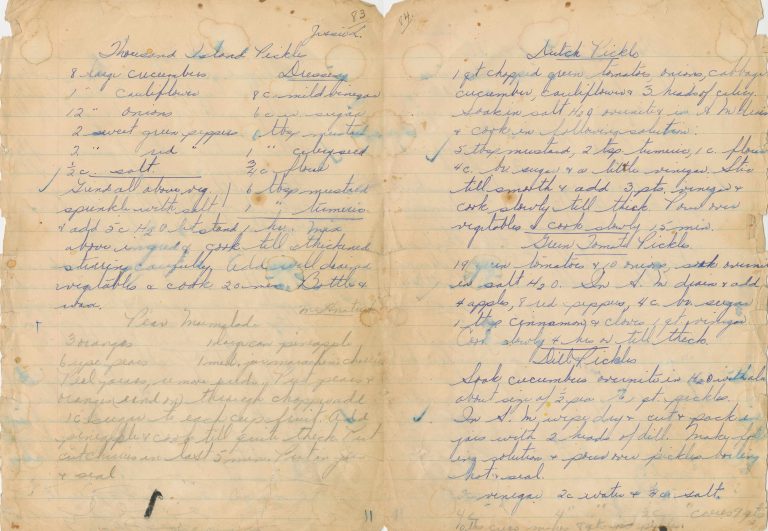 83
Jessie L.
Thousand Island Pickle
8 large cucumbers Dressing
1 " cauliflower 8 c. mild vinegar
12 " onions 6 c. sugar
2 sweet green peppers 6 tbsp mustard
2 " red " 1 " celery seed
1/2 c. salt 3/4 c. flour
Grind all above veg. 6 tbsp mustard
sprinkle with salt 1 " tumeric
& add 5 c H2O let stand 1 hr. Mix
above ingred & cook till thickened
stirring carefully. Add well drained
vegtables & cook 20 min. Bottle &
wax.
Pear Marmalade
3 oranges 1 large can pineapple
6 ripe pears 1 med. jar maraschino cherries
Peel pears, remove Put pears &
orange through chopper add
1 c sugar to each cup fruit. Add
pineapple & cook till quite thick. Put
cut cherries in last 5 min. Put in jars
& seal.
84
Dutch Pickle
1 qt chopped green tomatoes, onions, cabbage
cucumber, cauliflower & 3 heads of celery.
Soak in salt H2O overnite & in A.M. drain
& cook in following solution.
5 tbsp mustard, 2 tsp. tumeric, 1 c. flour
4 c. br. sugar & a little vinegar. Stir
till smooth & add 3 pts. vinegar &
cook slowly till thick. Pour over
vegtables & cook slowly 15 min.
Green Tomato Pickles.
19 green tomatoes & 10 onions, soak overnite
in salt H2O. In A.M drain & add
4 apples, 8 red peppers, 4 c. br. sugar
1 tbsp cinnamon & cloves 1 qt. vinegar
Cook slowly 2 hrs or till thick.
Dill Pickles
Soak cucumbers overnite in H2O
about size of
In A.M. wipe dry & cut & pack in
jars with 2 heads of dill. Make
ing solution & pour over pickles boiling
hot & seal.
vinegar 2 c water & salt.